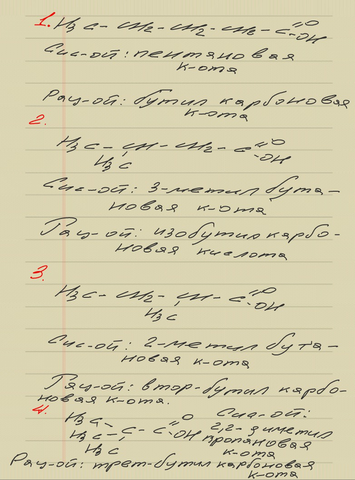 1. H3C - CH2 - CH2 - CH2 - C=O
-OH
Сис-ой: пентановая
к-ота
Рац-ой: бутил карбоновая
к-ота
2.
H3C - CH - CH2 - C=O
H3C -OH
Сис-ой: 3-метил бута-
новая к-ота
Рац-ой: изобутил карбо-
новая кислота
3.
H3C - CH2 - CH - C=O
H3C -OH
Сис-ой: 2-метил бута-
новая к-ота
Рац-ой: втор-бутил карбо-
новая к-ота.
4. H3C O Сис-ой:
H3C - C - C=OH 2,2-диметил
H3C пропановая
к-ота
Рац-ой: трет-бутил карбоновая
к-ота